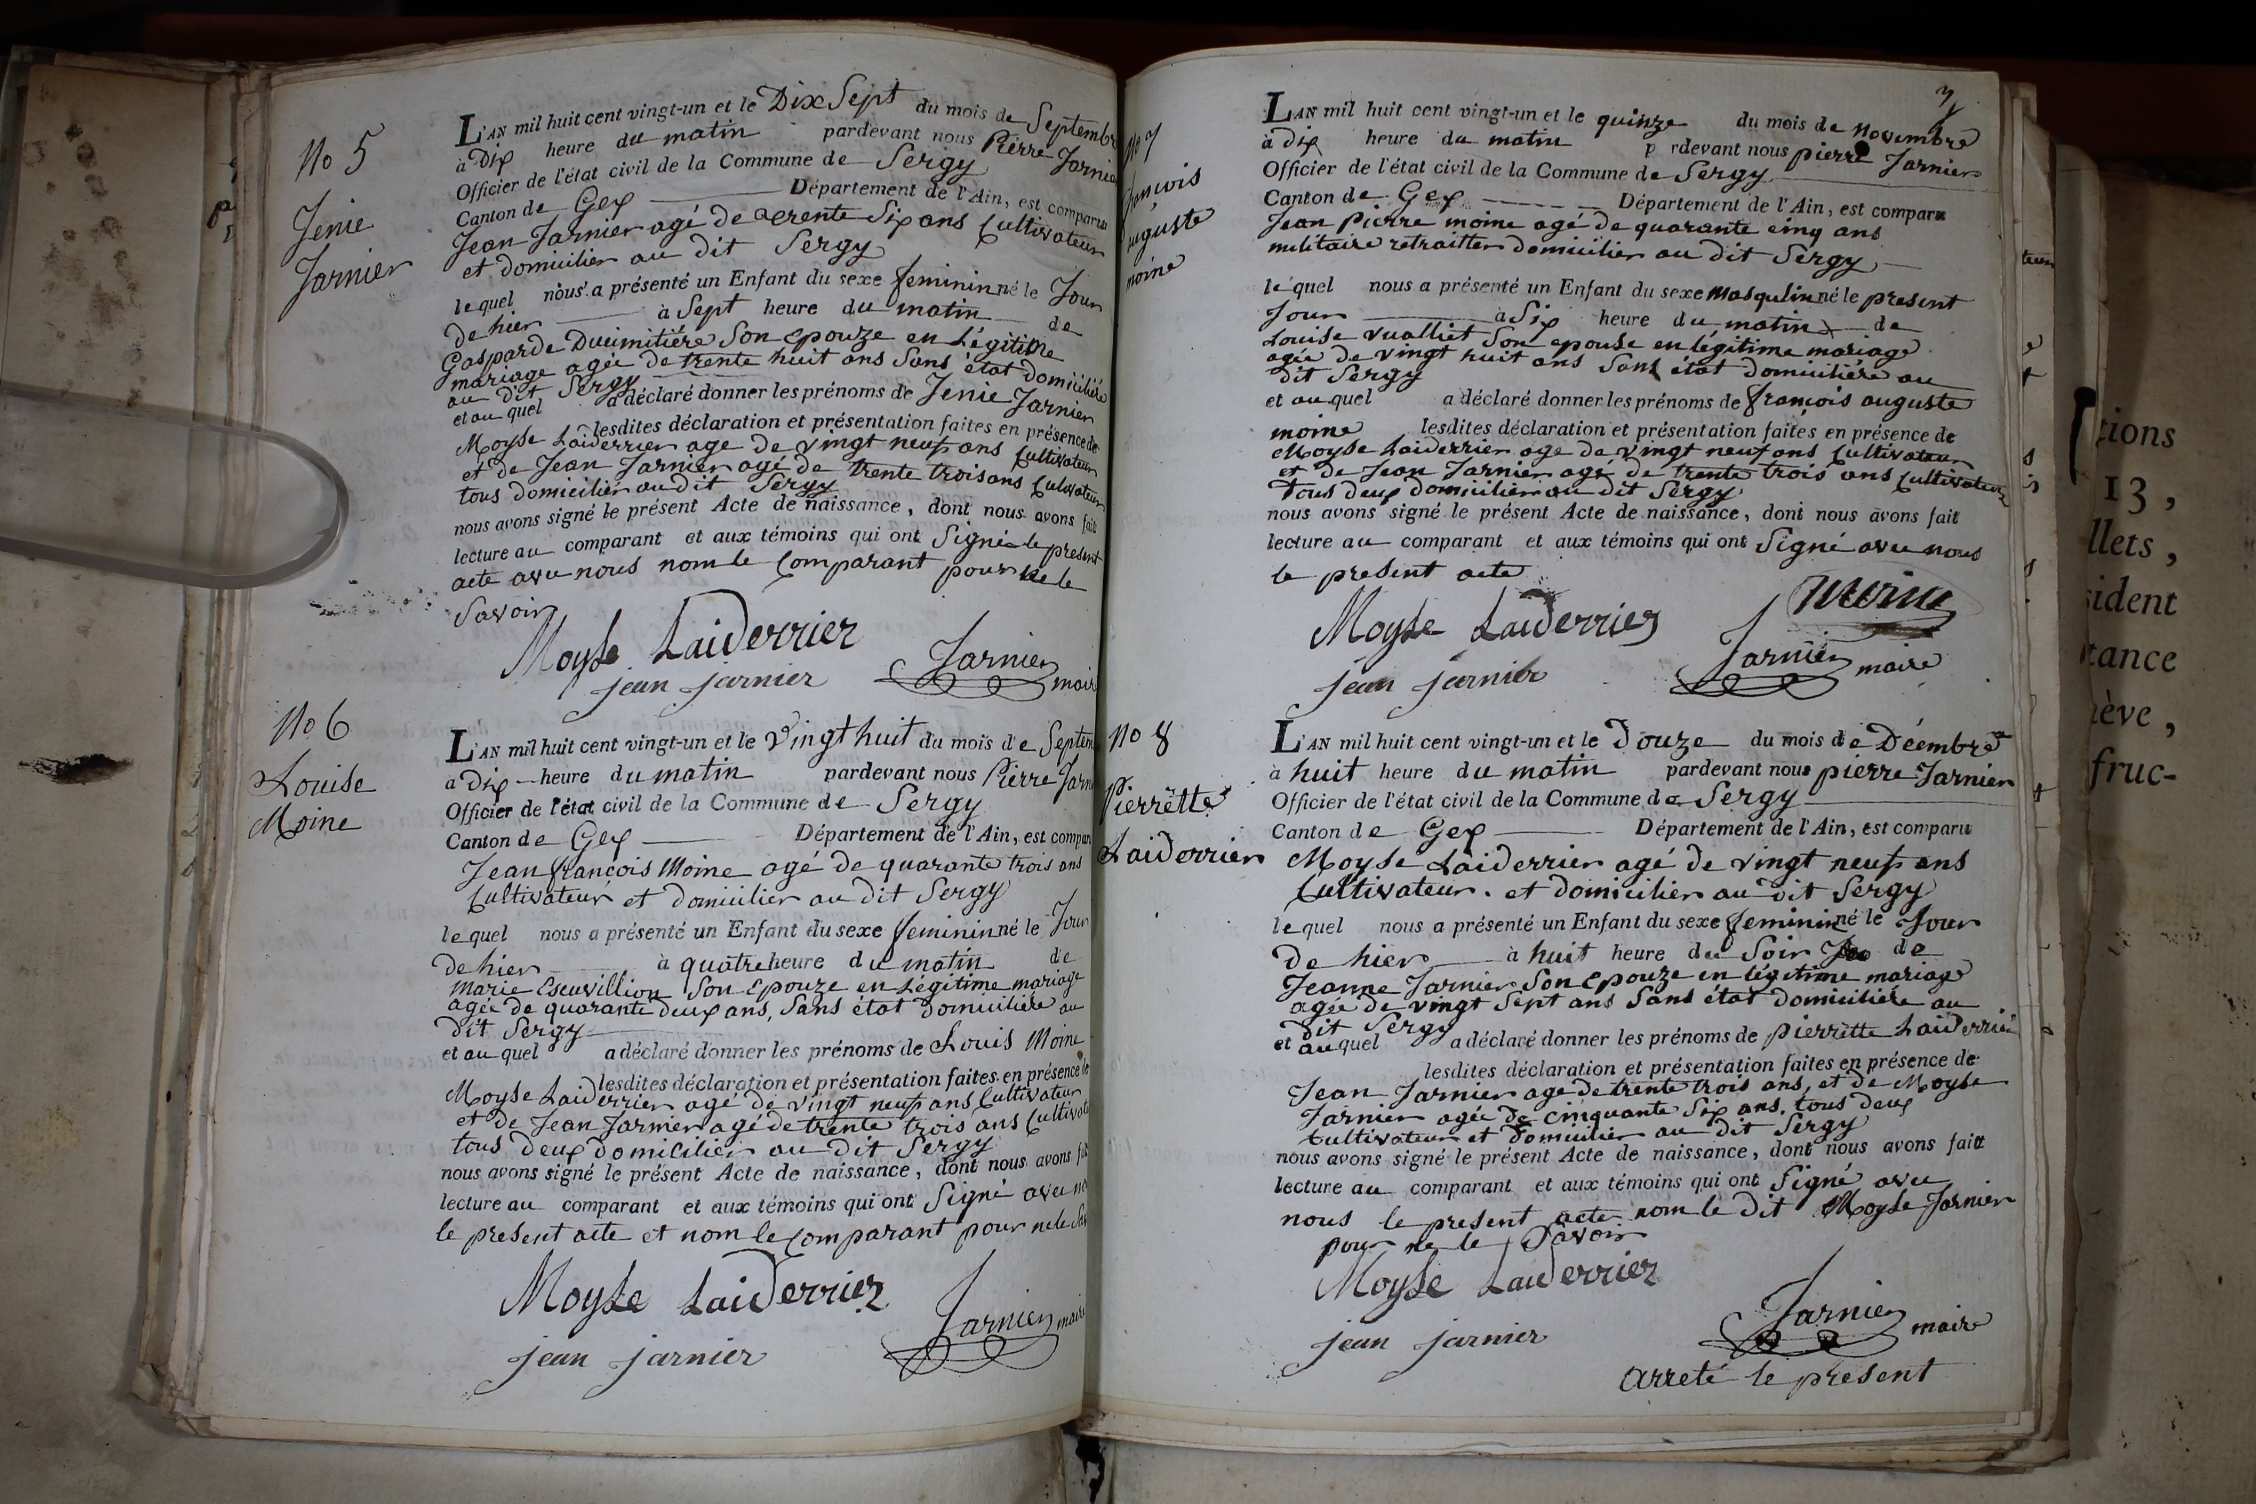 No 5
Jenie
Jarnier
L'AN mil huit cent vingt-un et le Dix Sept du mois de Septembr
à Dix heure du matin pardevant nous Pierre Jarnier
Officier de l'état civil de la Commune de Sergy
Canton de Gex Département de l'Ain, est comparu
Jean Jarnier agé de trente Six ans Cultivateur
et domicilier au dit Sergy
lequel nous a présenté un Enfant du sexe feminin né le Jour
de hier à Sept heure du matin de
Gasparde Ducimitiére Son Epouze en Légitime
mariage agée de trente huit ans Sans état domiciliére
au dit Sergy
et au quel a déclaré donner les prénoms de Jenie Jarnier
lesdites déclaration et présentation faites en présence de
Moyse Laiderrier age de vingt neuf ans Cultivateur
et de Jean Jarnier agé de trente trois ans Culivateur
tous domicilier au dit Sergy
nous avons signé le présent Acte de naissance, dont nous avons fait
lecture au comparant et aux témoins qui ont Signé le present
acte avec nous nom le Comparant pour ne le
Savoir
Moyse Laiderrier
jean jarnier Jarnier maire
No 6
Louise
Moine
L'AN mil huit cent vingt-un et le Vingt huit du mois de Septem
a Dix heure du matin pardevant nous Pierre Jarn
Officier de l'état civil de la Commune de Sergy
Canton de Gex Département de l'Ain, est compar
Jean françois Moine agé de quarante trois ans
Cultivateur et domicilier au dit Sergy
lequel nous a présenté un Enfant du sexe feminin né le Jour
de hier à quatre heure du matin de
marie Escuvillion Son Epouze en Légitime mariage
agée de quarante deux ans, Sans état domiciliére au
dit Sergy
et au quel a déclaré donner les prénoms de Louis Moine
lesdites déclaration et présentation faites en présence de
Moyse Laiderrier agé de vingt neuf ans Cultivateur
et de Jean Jarnier agé de trente trois ans Cultivate
tous deux domicilier au dit Sergy
nous avons signé le présent Acte de naissance, dont nous avons fait
lecture au comparant et aux témoins qui ont Signé avec no
le present acte et nom le Comparant pour ne le Sav
Moyse Laiderrier
jean jarnier Jarnier maire
3
No 7
françois
auguste
moine
L'AN mil huit cent vingt-un et le quinze du mois de Novembre
à dix heure du matin p rdevant nous pierre Jarnier
Officier de l'état civil de la Commune de Sergy
Canton de Gex Département de l'Ain, est comparu
Jean Pierre moine agé de quarante cinq ans
militaire retraitter domicilier au dit Sergy
lequel nous a présenté un Enfant du sexe Masqulin né le present
Jour à Six heure du matin de
Louise vualliet Son epouse en légitime mariage
agée de vingt huit ans Sans état domiciliére au
dit Sergy
et au quel a déclaré donner les prénoms de françois auguste
moine lesdites déclaration et présentation faites en présence de
Moyse Laiderrier age de vingt neuf ans Cultivateur
et de Jean Jarnier agé de trente trois ans Cultivateur
tous deux domicilier au dit Sergy
nous avons signé le présent Acte de naissance, dont nous avons fait
lecture au comparant et aux témoins qui ont Signé avec nous
le present acte
moine
Moyse Laiderrier
jean jarnier Jarnier maire
No 8
Pierrette
Laiderrier
L'AN mil huit cent vingt-un et le Douze du mois de Déembre
à huit heure du matin pardevant nous pierre Jarnier
Officier de l'état civil de la Commune de Sergy
Canton de Gex Département de l'Ain, est comparu
Moyse Laiderrier agé de vingt neuf ans
Cultivateur. et domicilier au dit Sergy
lequel nous a présenté un Enfant du sexe feminin né le Jour
de hier à huit heure du Soir de
Jeanne Jarnier Son Epouze en légitime mariage
agée de vingt Sept ans Sans état domiciliére au
dit Sergy
et au quel a déclaré donner les prénoms de pierrette Laiderrier
lesdites déclaration et présentation faites en présence de
Jean Jarnier age de trente trois ans, et de Moyse
Jarnier agée de cinquante Six ans, tous deux
Cultivateur et domicilier au dit Sergy
nous avons signé le présent Acte de naissance, dont nous avons fait
lecture au comparant et aux témoins qui ont Signé avec
nous le present acte nom le dit Moyse Jarnier
pour ne le Savoir
Moyse Laiderrier
jean jarnier Jarnier maire
arreté le present
tions
13,
llets,
sident
tance
nève,
fruc-